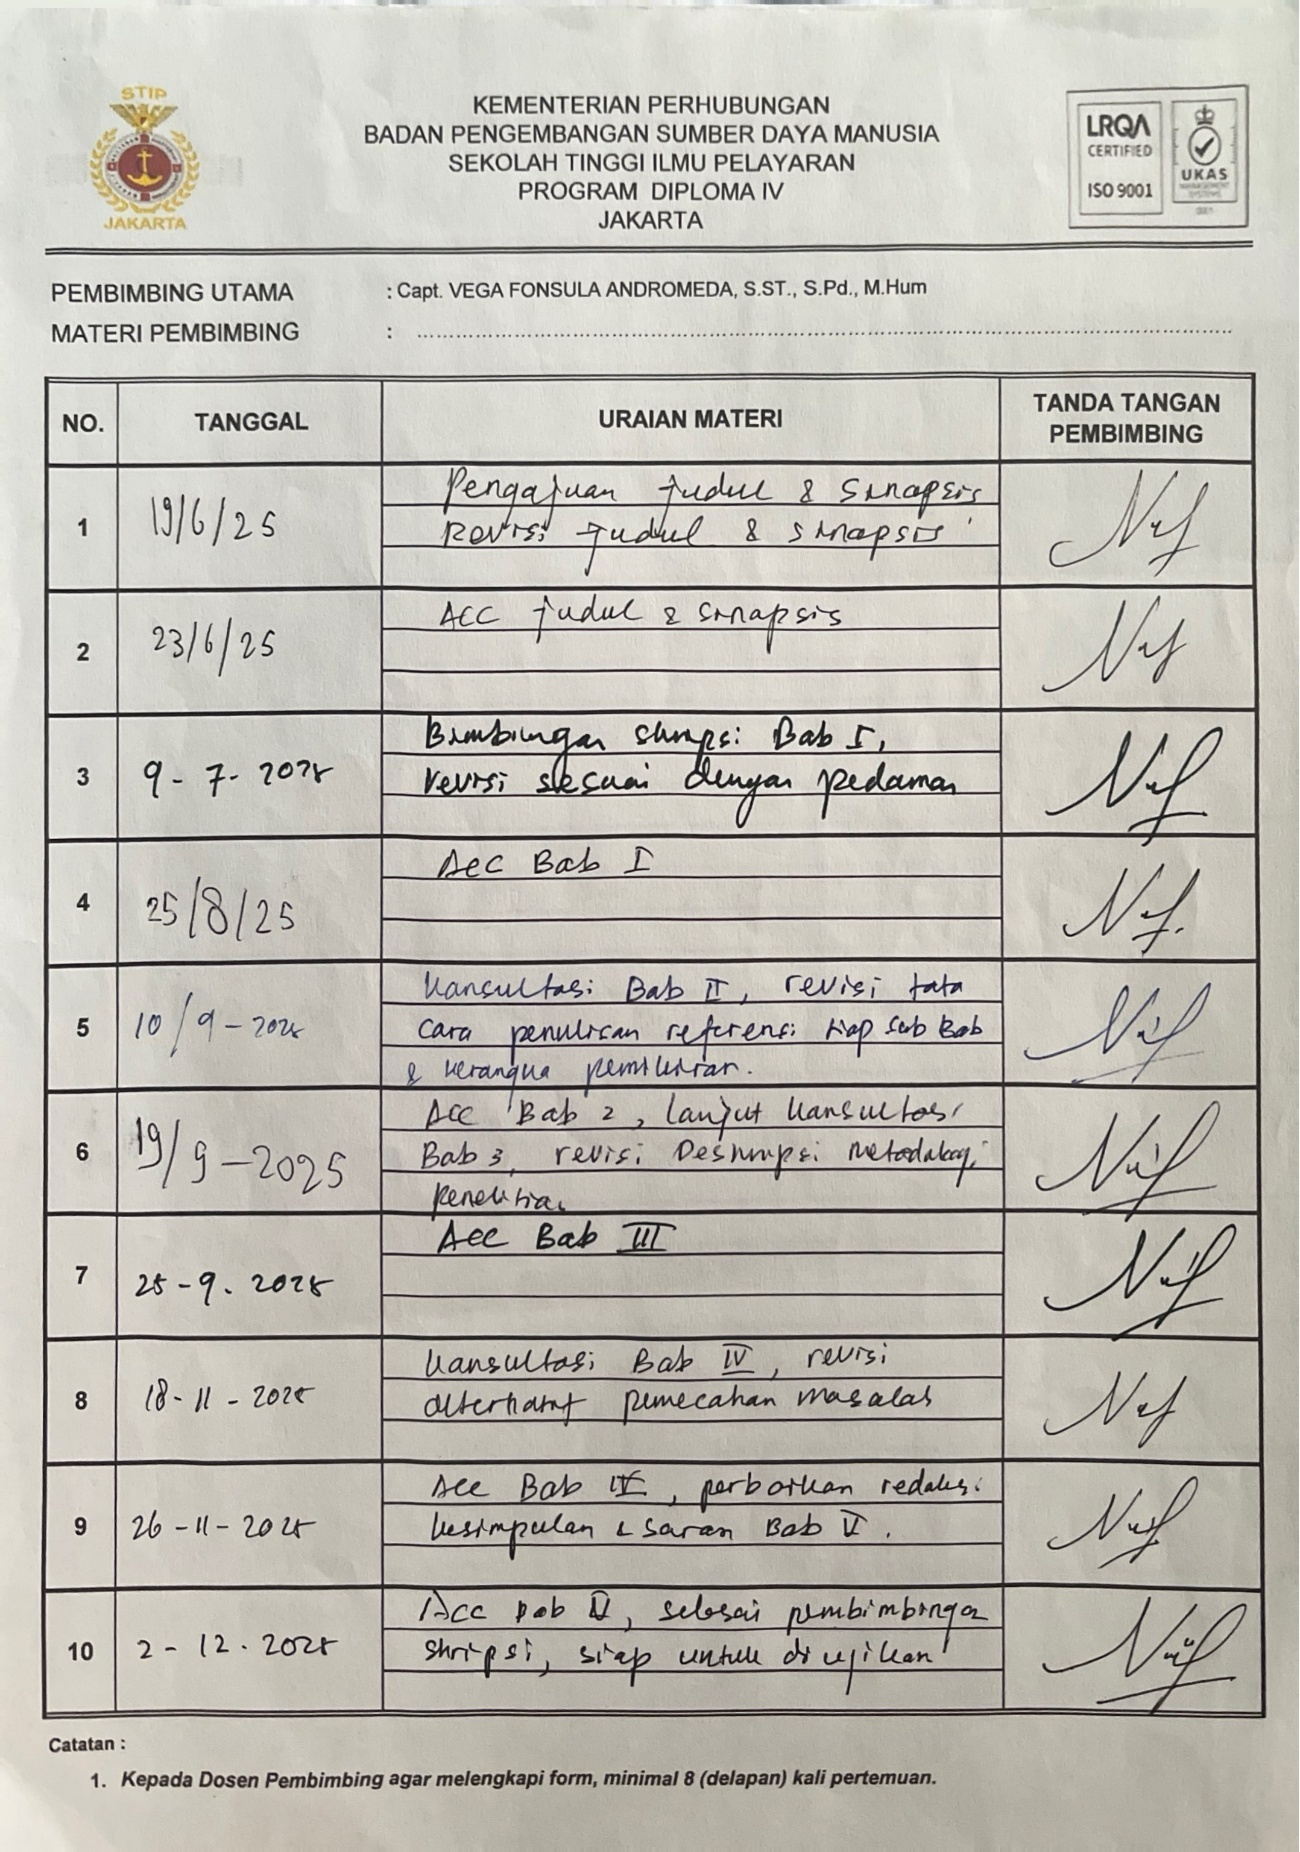 STIP
JAKARTA
KEMENTERIAN PERHUBUNGAN
BADAN PENGEMBANGAN SUMBER DAYA MANUSIA
SEKOLAH TINGGI ILMU PELAYARAN
PROGRAM DIPLOMA IV
JAKARTA
LRQA
CERTIFIED
ISO 9001
UKAS
MANAGEMENT
SYSTEMS
PEMBIMBING UTAMA : Capt. VEGA FONSULA ANDROMEDA, S.ST., S.Pd., M.Hum
MATERI PEMBIMBING :
NO. TANGGAL URAIAN MATERI TANDA TANGAN PEMBIMBING
1 19/6/25 Pengajuan judul & sinopsis
Revisi judul & sinopsis
2 23/6/25 ACC judul & sinopsis
3 9-7-2025 Bimbingan skripsi Bab I,
revisi sesuai dengan pedoman
4 25/8/25 Acc Bab I
5 10/9-2025 Konsultasi Bab II, revisi tata
cara penulisan referensi tiap sub Bab
& kerangka pemikiran.
6 19/9-2025 Acc Bab 2, lanjut konsultasi
Bab 3, revisi Deskripsi metodologi
penelitian
7 25-9-2025 Acc Bab III
8 18-11-2025 Konsultasi Bab IV, revisi
alternatif pemecahan masalah
9 26-11-2025 Acc Bab IV, perbaikan redaksi
kesimpulan & saran Bab V.
10 2-12-2025 Acc Bab V, selesai pembimbingan
skripsi, siap untuk diujikan
Catatan :
1. Kepada Dosen Pembimbing agar melengkapi form, minimal 8 (delapan) kali pertemuan.